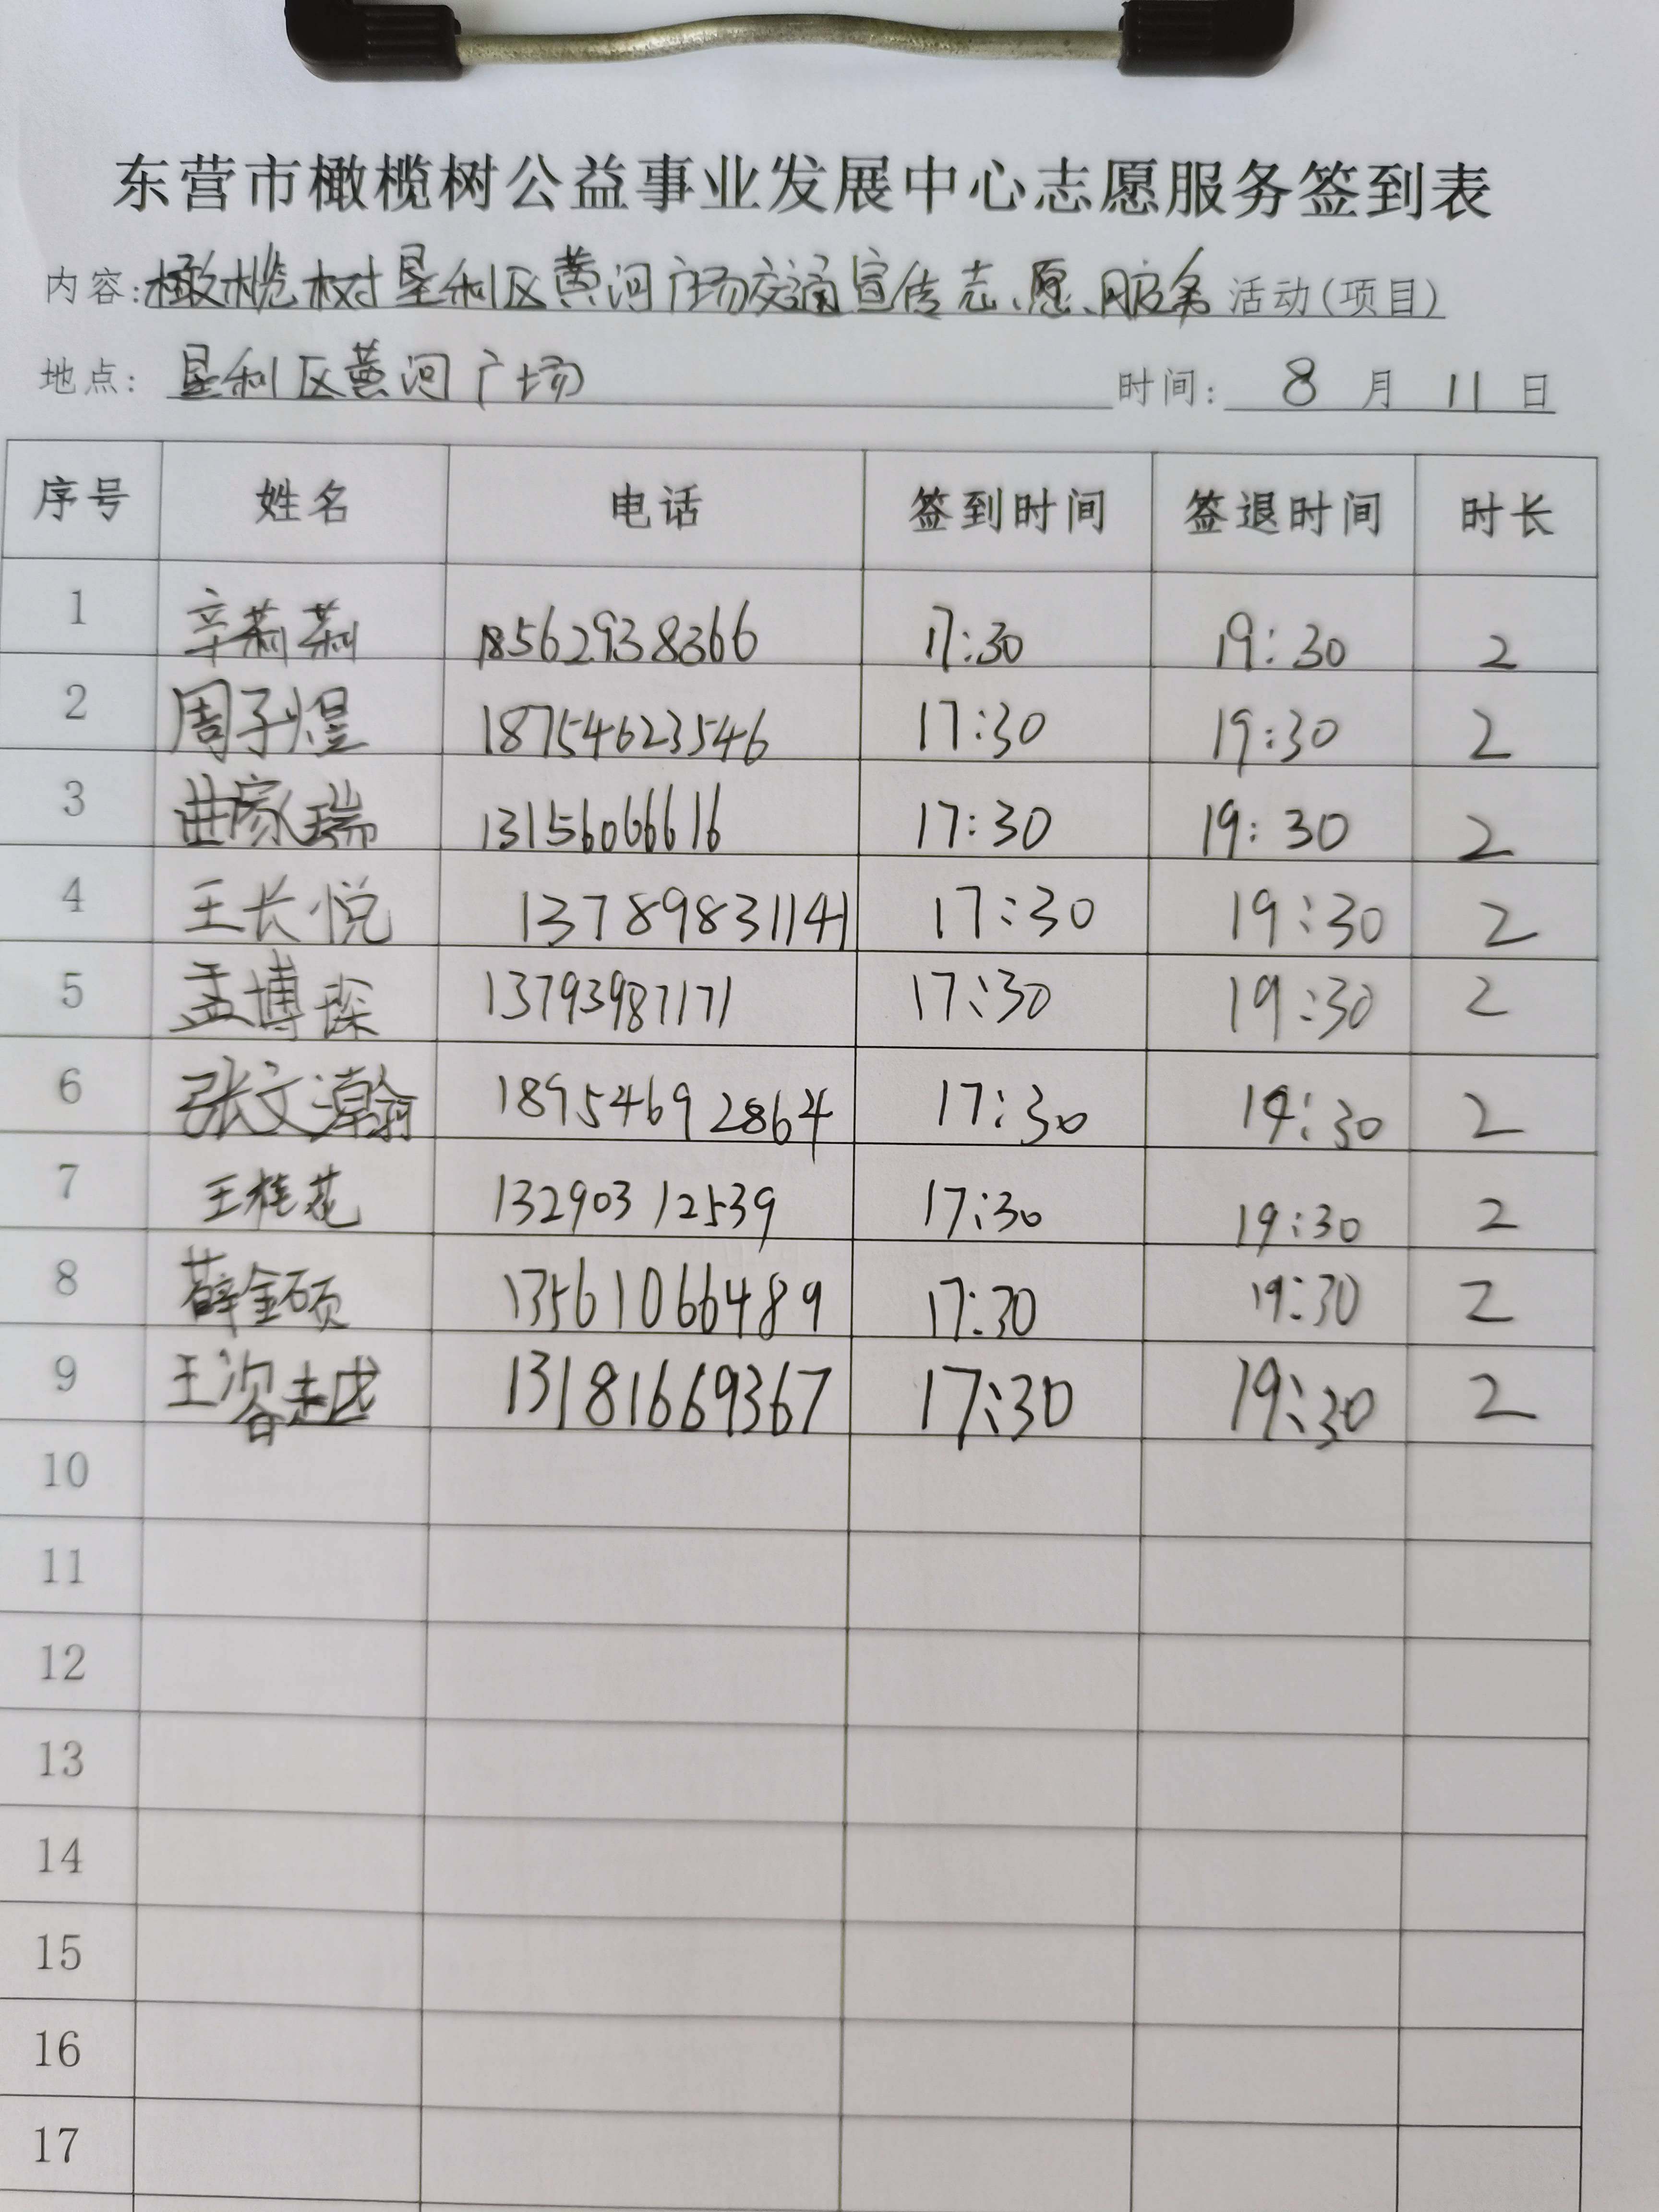 东营市橄榄树公益事业发展中心志愿服务签到表
内容:橄榄树垦利区黄河广场交通宣传志愿服务活动(项目)
地点: 垦利区黄河广场 时间: 8 月 11 日
序号 姓名 电话 签到时间 签退时间 时长
1 辛莉莉 18562938366 17:30 19:30 2
2 周子煜 18754623546 17:30 19:30 2
3 曲家瑞 13156066616 17:30 19:30 2
4 王长悦 13789831141 17:30 19:30 2
5 孟博琛 13793987171 17:30 19:30 2
6 张文瀚 18954692864 17:30 19:30 2
7 王桂花 13290312539 17:30 19:30 2
8 薛金硕 13561066489 17:30 19:30 2
9 王 越 13181669367 17:30 19:30 2
10
11
12
13
14
15
16
17